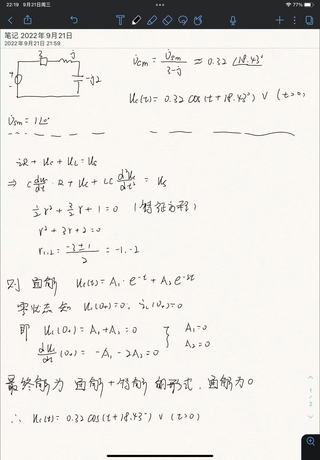 22:19 9月21日周三
77%
笔记 2022年9月21日
2022年9月21日 21:59
3 j
-j2
U̇cm = U̇sm / (3-j) ≈ 0.32 ∠18.43°
Uc(t) = 0.32 cos(t+18.43°) V (t>0)
U̇sm = 1∠0°
iR + Uc + UL = Us
⇒ C duc/dt · R + Uc + LC d²Uc/dt² = Us
½r² + 3/2 r + 1 = 0 (特征方程)
r² + 3r + 2 = 0
r₁,₂ = (-3±1)/2 = -1, -2
则 通解 Uc(t) = A₁·e^-t + A₂e^-2t
零状态知 Uc(0+)=0, iL(0+)=0
即 Uc(0+) = A₁+A₂ = 0
duc/dt (0+) = -A₁-2A₂ = 0
A₁=0
A₂=0
最终解为 通解+特解 的形式, 通解为0
∴ Uc(t) = 0.32 cos(t+18.43°) V (t>0)
1/2